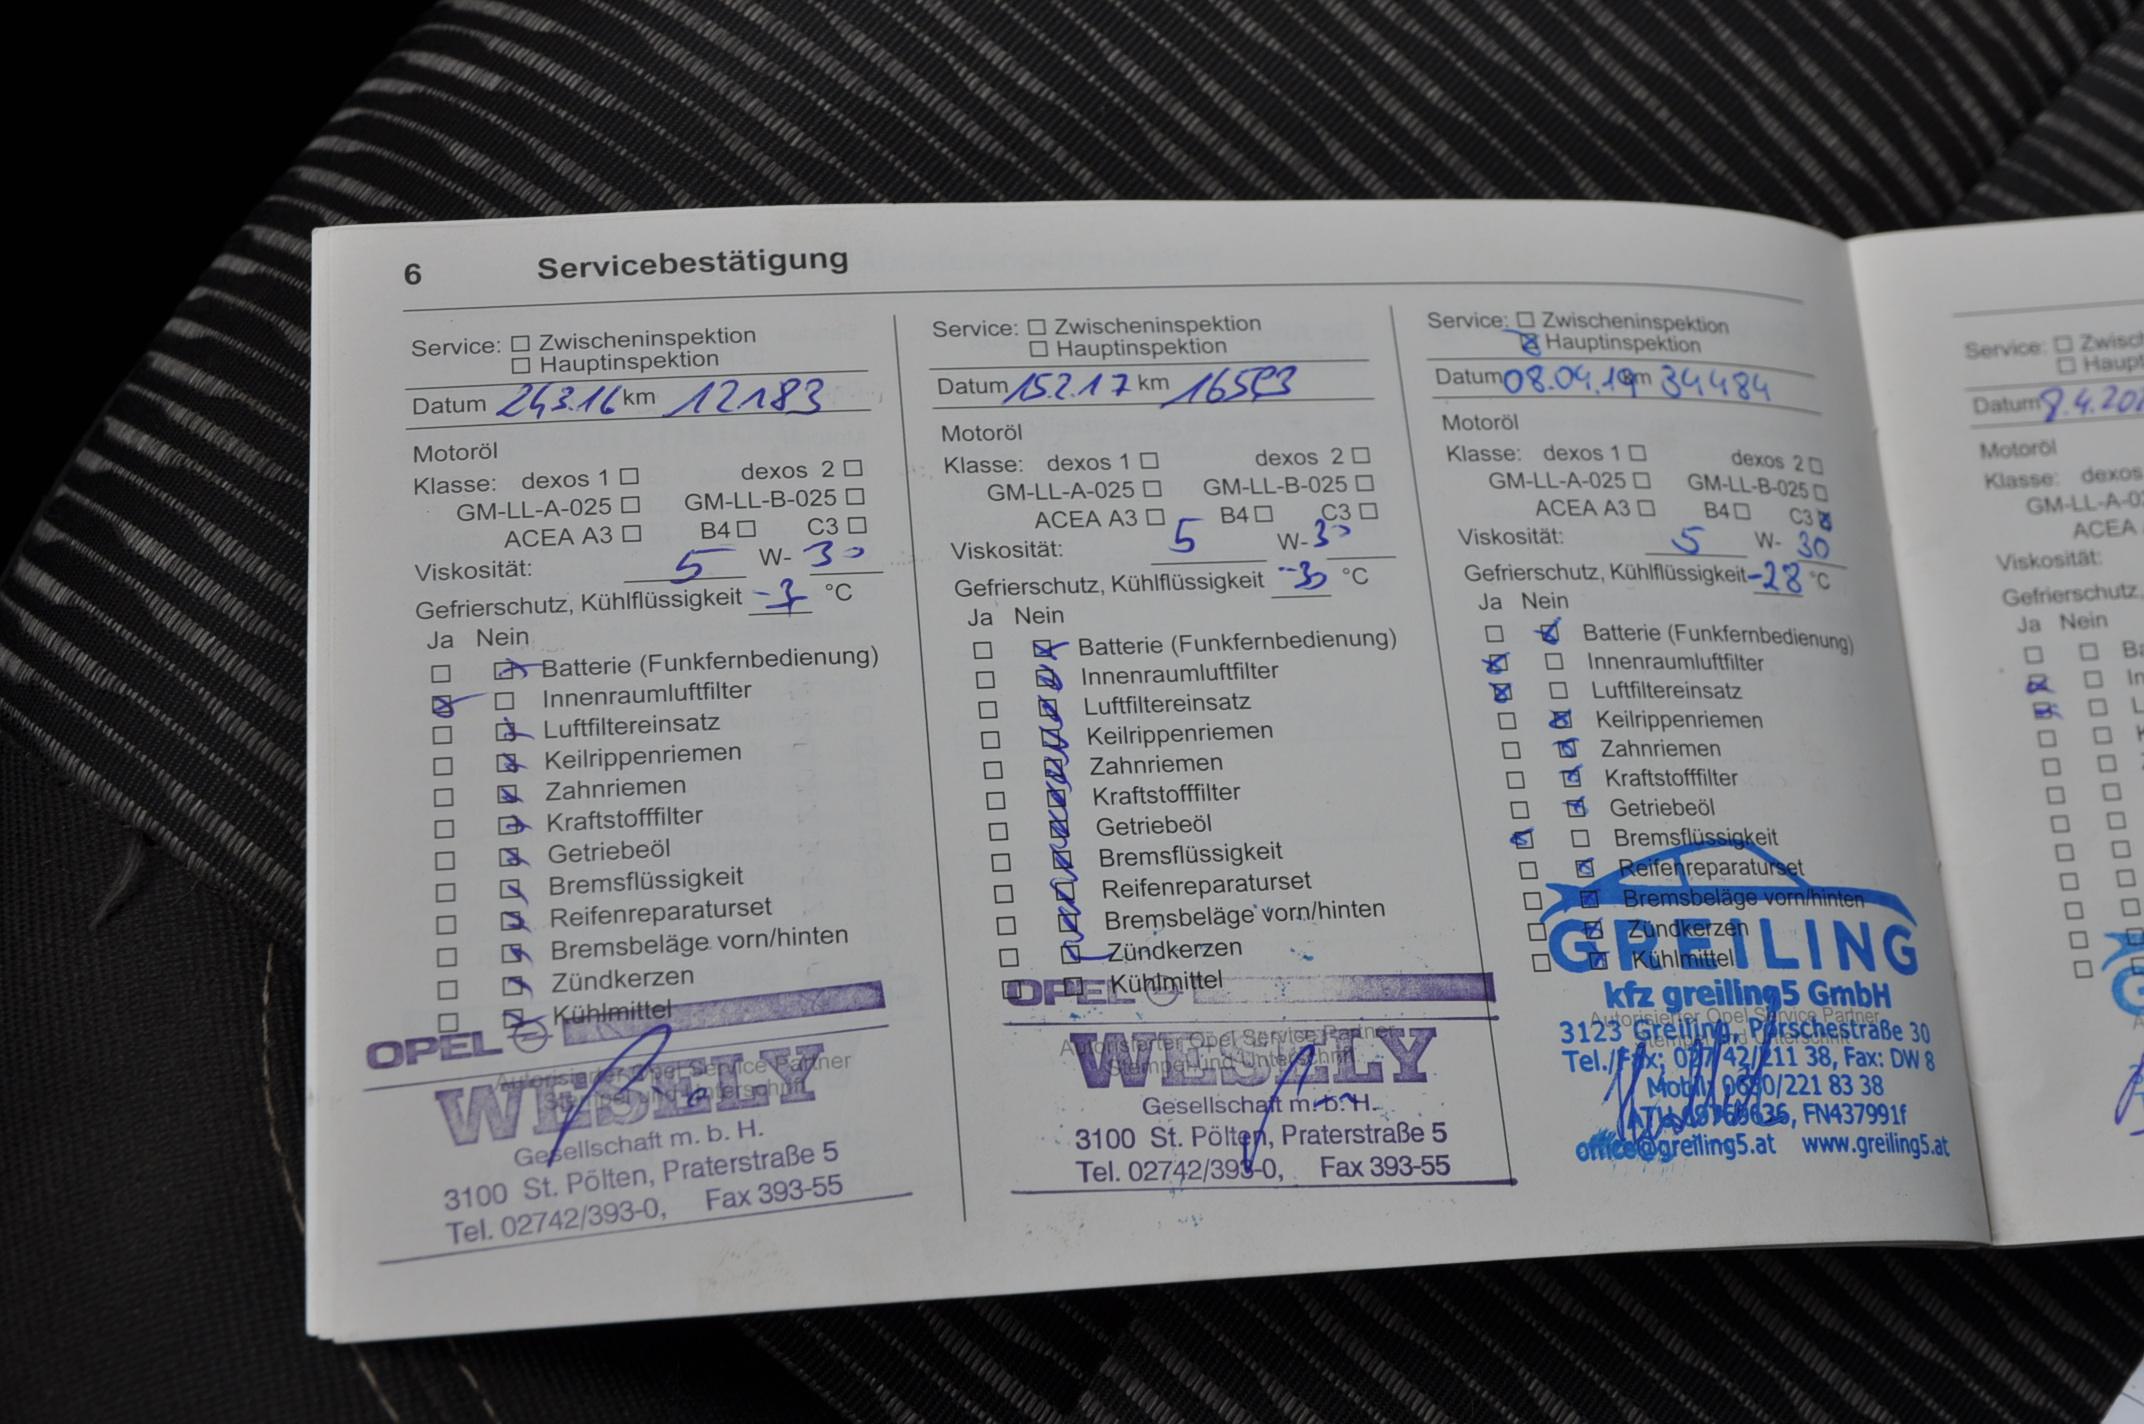 6 Servicebestätigung
Service: Zwischeninspektion
Hauptinspektion
Datum 24.3.16 km 12183
Motoröl
Klasse: dexos 1 dexos 2
GM-LL-A-025 GM-LL-B-025
ACEA A3 B4 C3
Viskosität: 5 W- 30
Gefrierschutz, Kühlflüssigkeit °C
Ja Nein
Batterie (Funkfernbedienung)
Innenraumluftfilter
Luftfiltereinsatz
Keilrippenriemen
Zahnriemen
Kraftstofffilter
Getriebeöl
Bremsflüssigkeit
Reifenreparaturset
Bremsbeläge vorn/hinten
Zündkerzen
Kühlmittel
OPEL
Autorisierter Opel Service Partner
Stempel und Unterschrift
WESELY
Gesellschaft m. b. H.
3100 St. Pölten, Praterstraße 5
Tel. 02742/393-0, Fax 393-55
Service: Zwischeninspektion
Hauptinspektion
Datum 15.2.17 km
Motoröl
Klasse: dexos 1 dexos 2
GM-LL-A-025 GM-LL-B-025
ACEA A3 B4 C3
Viskosität: 5 W- 30
Gefrierschutz, Kühlflüssigkeit -30 °C
Ja Nein
Batterie (Funkfernbedienung)
Innenraumluftfilter
Luftfiltereinsatz
Keilrippenriemen
Zahnriemen
Kraftstofffilter
Getriebeöl
Bremsflüssigkeit
Reifenreparaturset
Bremsbeläge vorn/hinten
Zündkerzen
Kühlmittel
OPEL
Autorisierter Opel Service Partner
Stempel und Unterschrift
WESELY
Gesellschaft m. b. H.
3100 St. Pölten, Praterstraße 5
Tel. 02742/393-0, Fax 393-55
Service: Zwischeninspektion
Hauptinspektion
Datum 08.04.19 km 34484
Motoröl
Klasse: dexos 1 dexos 2
GM-LL-A-025 GM-LL-B-025
ACEA A3 B4 C3
Viskosität: 5 W- 30
Gefrierschutz, Kühlflüssigkeit -28 °C
Ja Nein
Batterie (Funkfernbedienung)
Innenraumluftfilter
Luftfiltereinsatz
Keilrippenriemen
Zahnriemen
Kraftstofffilter
Getriebeöl
Bremsflüssigkeit
Reifenreparaturset
Bremsbeläge vorn/hinten
Zündkerzen
Kühlmittel
GREILING
kfz greiling5 GmbH
Autorisierter Opel Service Partner
Stempel und Unterschrift
3123 Greiling, Porschestraße 30
Tel./Fax: 02742/211 38, Fax: DW 8
Mobil: 0680/221 83 38
FN437991f
office@greiling5.at www.greiling5.at
Service: Zwisch
Haupt
Datum 9.4.202
Motoröl
Klasse: dexos
GM-LL-A-0
ACEA
Viskosität:
Gefrierschutz,
Ja Nein